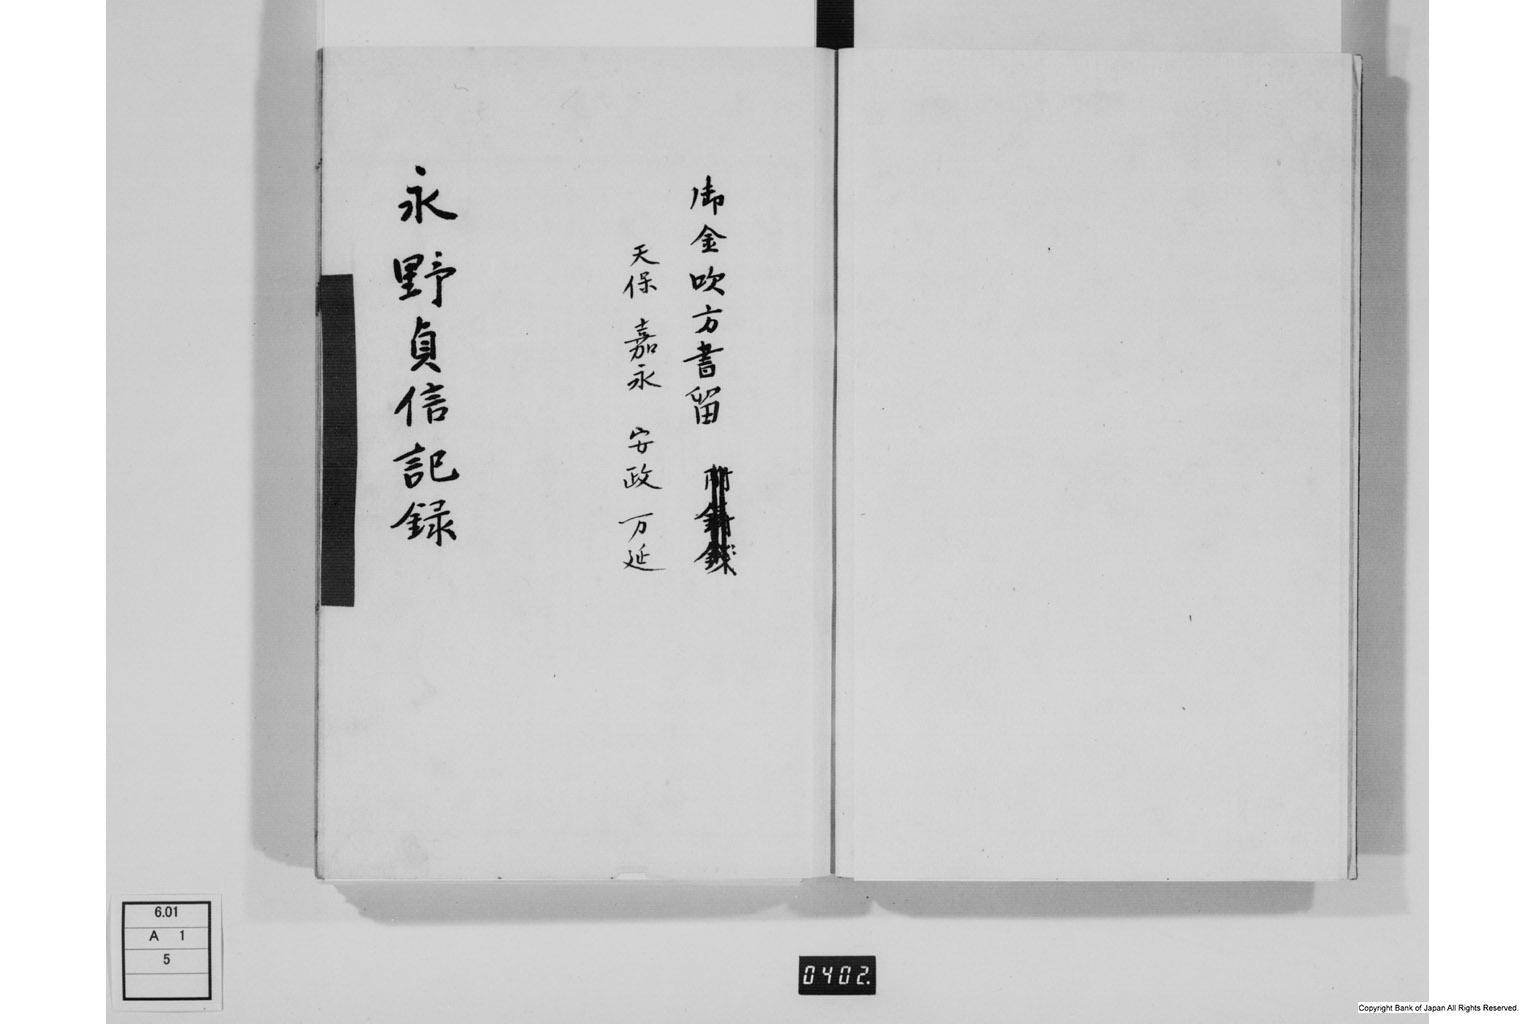 御金吹方書留 附鋳銭
天保 嘉永 安政 万延
永野貞信記録
6.01
A 1
5
0402.
Copyright Bank of Japan All Rights Reserved.